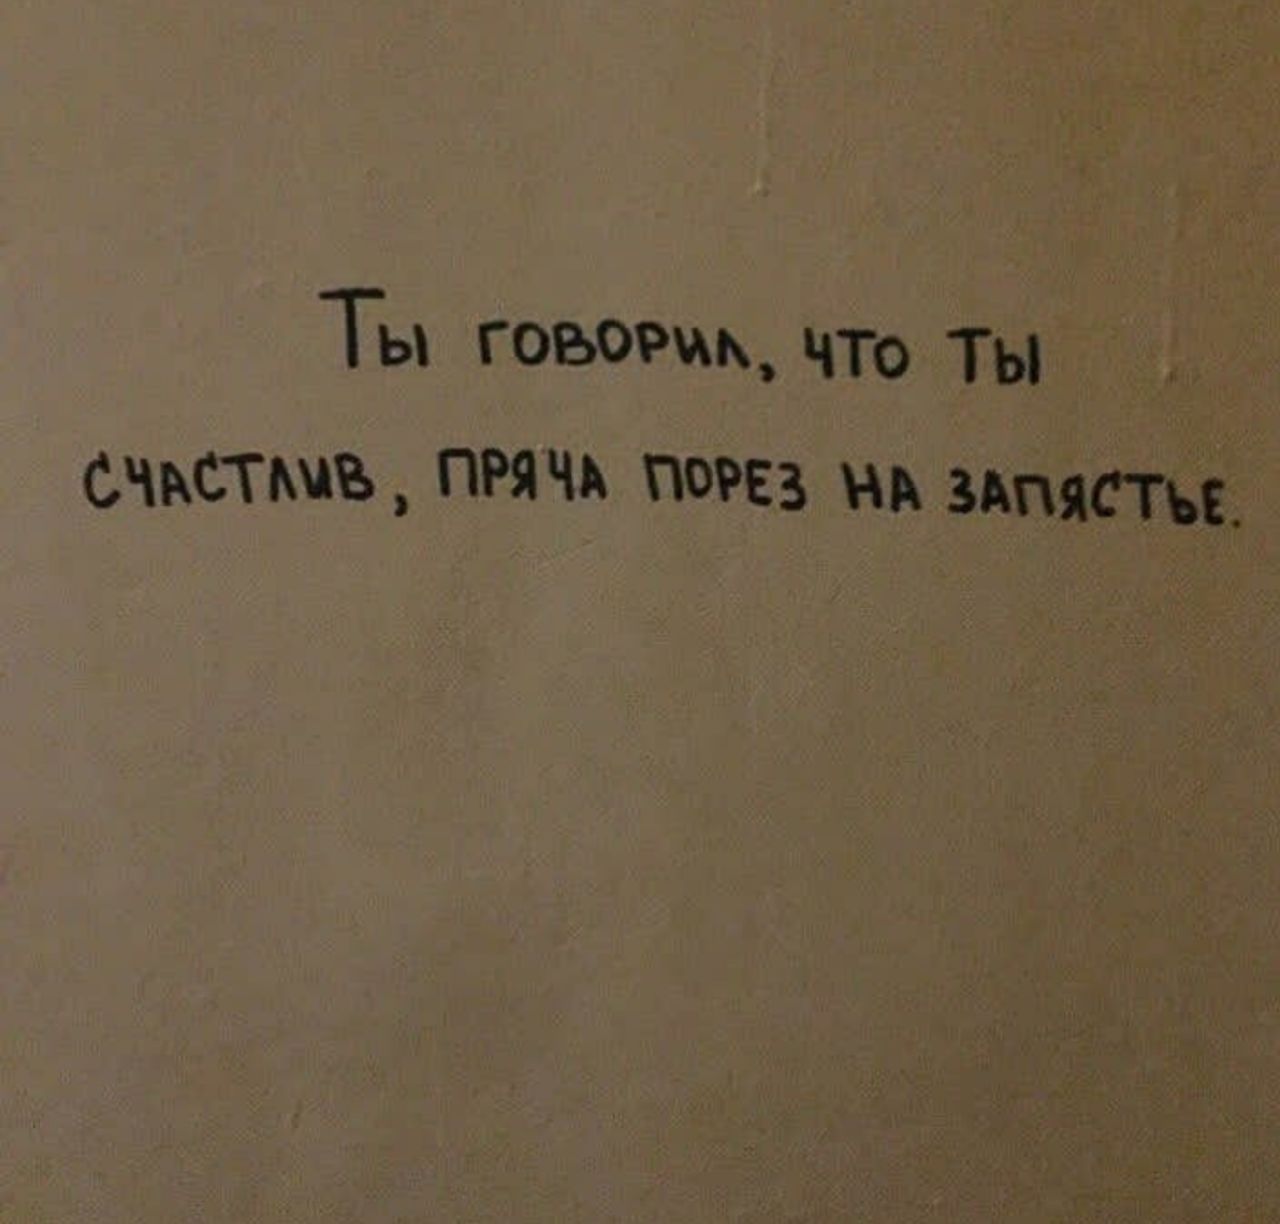 Ты говорил, что ты
счастлив, пряча порез на запястье.